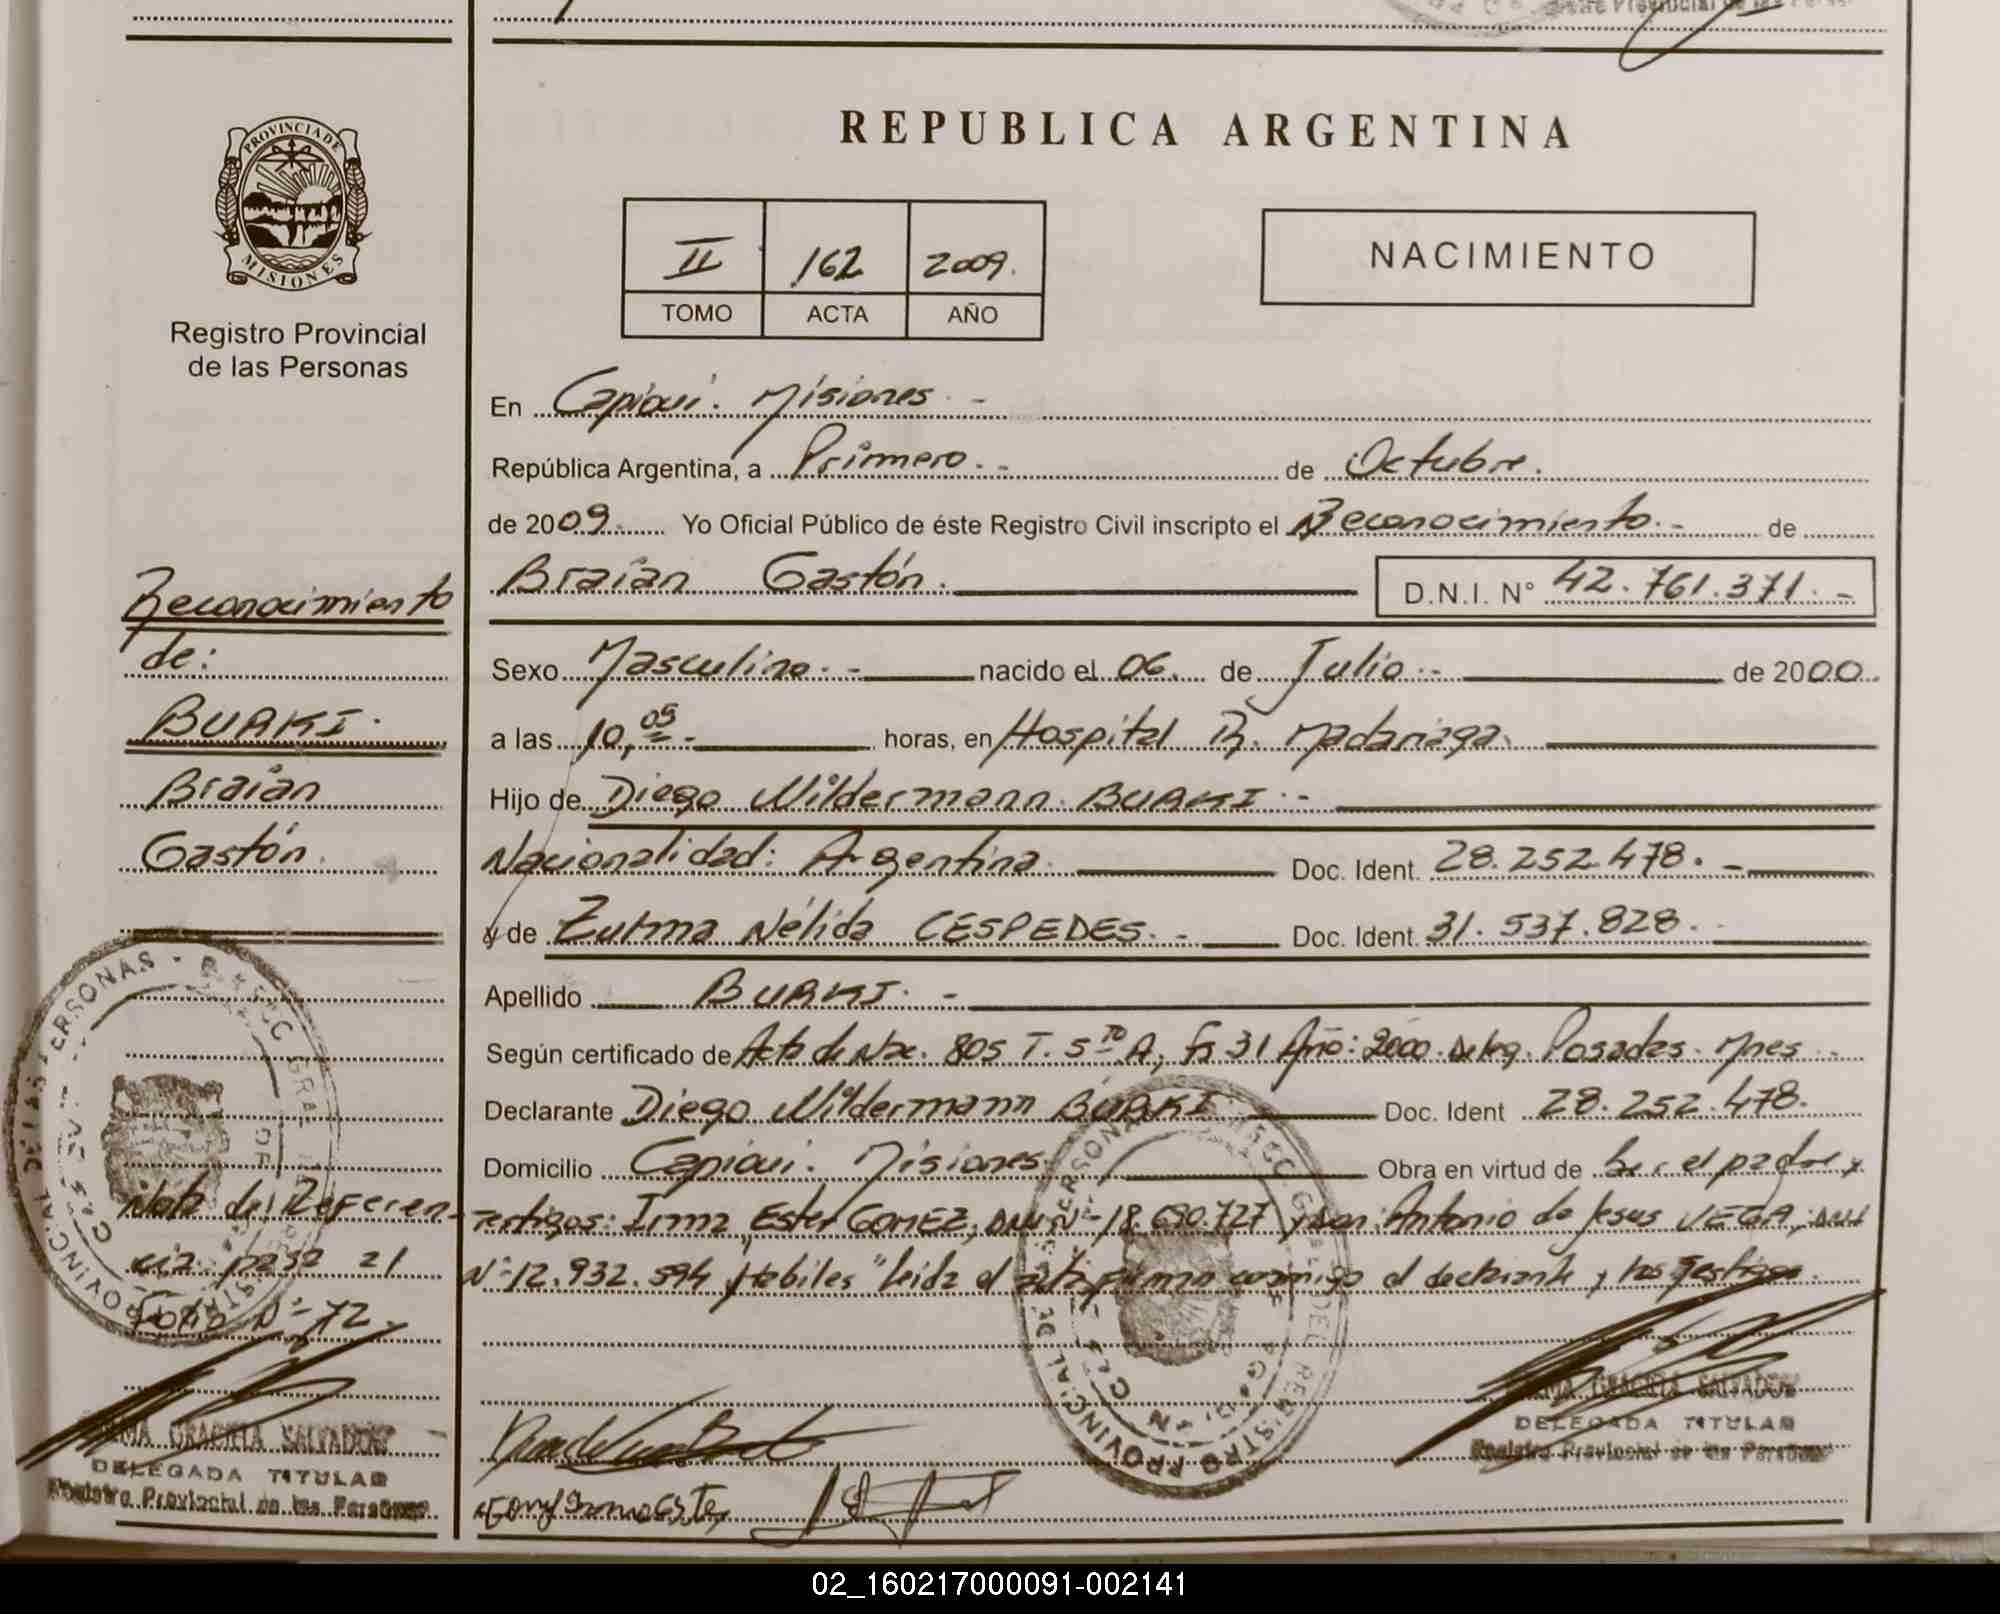 REPUBLICA ARGENTINA
PROVINCIA DE
MISIONES
Registro Provincial
de las Personas
II 162 2009.
TOMO ACTA AÑO
NACIMIENTO
En Capiovi. Misiones. -
República Argentina, a Primero. - de Octubre.
de 2009. Yo Oficial Público de éste Registro Civil inscripto el Reconocimiento. - de
Braian Gastón. D.N.I. N° 42.761.371. -
Sexo Masculino. - nacido el 06. de Julio. - de 2000.
a las 10,05 - horas, en Hospital R. Madariaga.
Hijo de Diego Wildermann BURKI. -
Nacionalidad: Argentina. Doc. Ident. 28.252.478. -
y de Zulma Nélida CESPEDES. - Doc. Ident. 31.537.828. -
Apellido BURKI. -
Según certificado de Acta de Nac. 805 T. 5to A, Fs 31 Año: 2000. Deleg. Posadas. Mnes.
Declarante Diego Wildermann BURKI Doc. Ident 28.252.478.
Domicilio Capiovi. Misiones. Obra en virtud de Ser el padre y
Testigos: Irma Ester GOMEZ, DNI N° 18.690.727 y Don: Antonio de Jesus VEGA, DNI
N° 12.932.594 Habiles "leida el acta firman conmigo el declarante y los testigos.
Reconocimiento
de:
BURKI.
Braian
Gastón.
Nota de Referen-
cia pasa al
Folio N° 72.
GRACIELA SALVADOR
DELEGADA TITULAR
Registro Provincial de las Personas
GRACIELA SALVADOR
DELEGADA TITULAR
Registro Provincial de las Personas
02_160217000091-002141